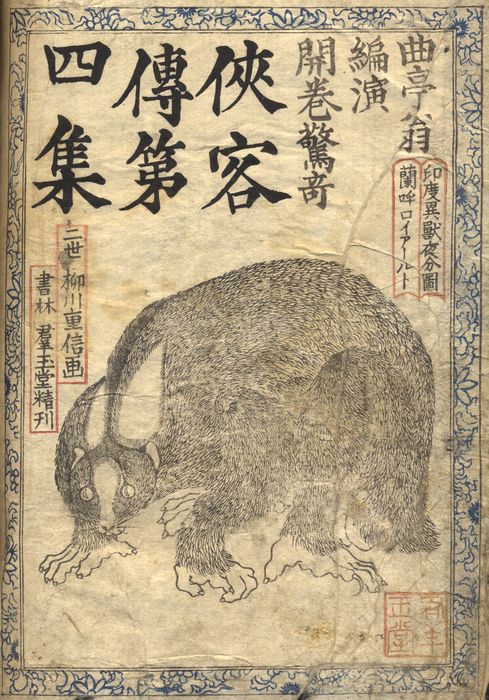 曲亭翁
編演
開卷驚奇
俠客
傳第
四集
印度異獸夜分圖
蘭呼ロイアールト
二世柳川重信画
書林 羣玉堂精刊